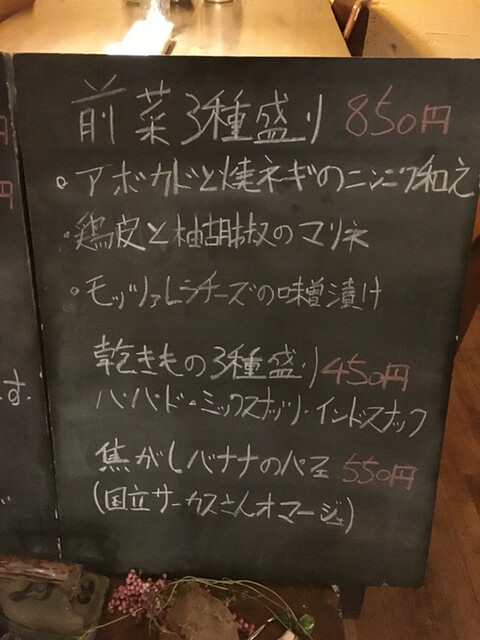 前菜3種盛り 850円
・アボカドと焼ネギのニンニク和え
・鶏皮と柚胡椒のマリネ
・モッツァレラチーズの味噌漬け
乾きもの3種盛り 450円
パパド・ミックスナッツ・インドスナック
焦がしバナナのパフェ 550円
(国立サーカスさんオマージュ)
す.
円